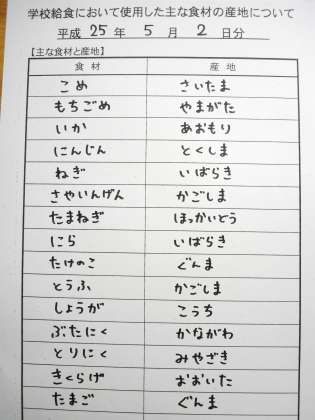 学校給食において使用した主な食材の産地について
平成 25 年 5 月 2 日分
【主な食材と産地】
食 材 産 地
こめ さいたま
もちごめ やまがた
いか あおもり
にんじん とくしま
ねぎ いばらき
さやいんげん かごしま
たまねぎ ほっかいどう
にら いばらき
たけのこ ぐんま
とうふ かごしま
しょうが こうち
ぶたにく かながわ
とりにく みやざき
きくらげ おおいた
たまご ぐんま